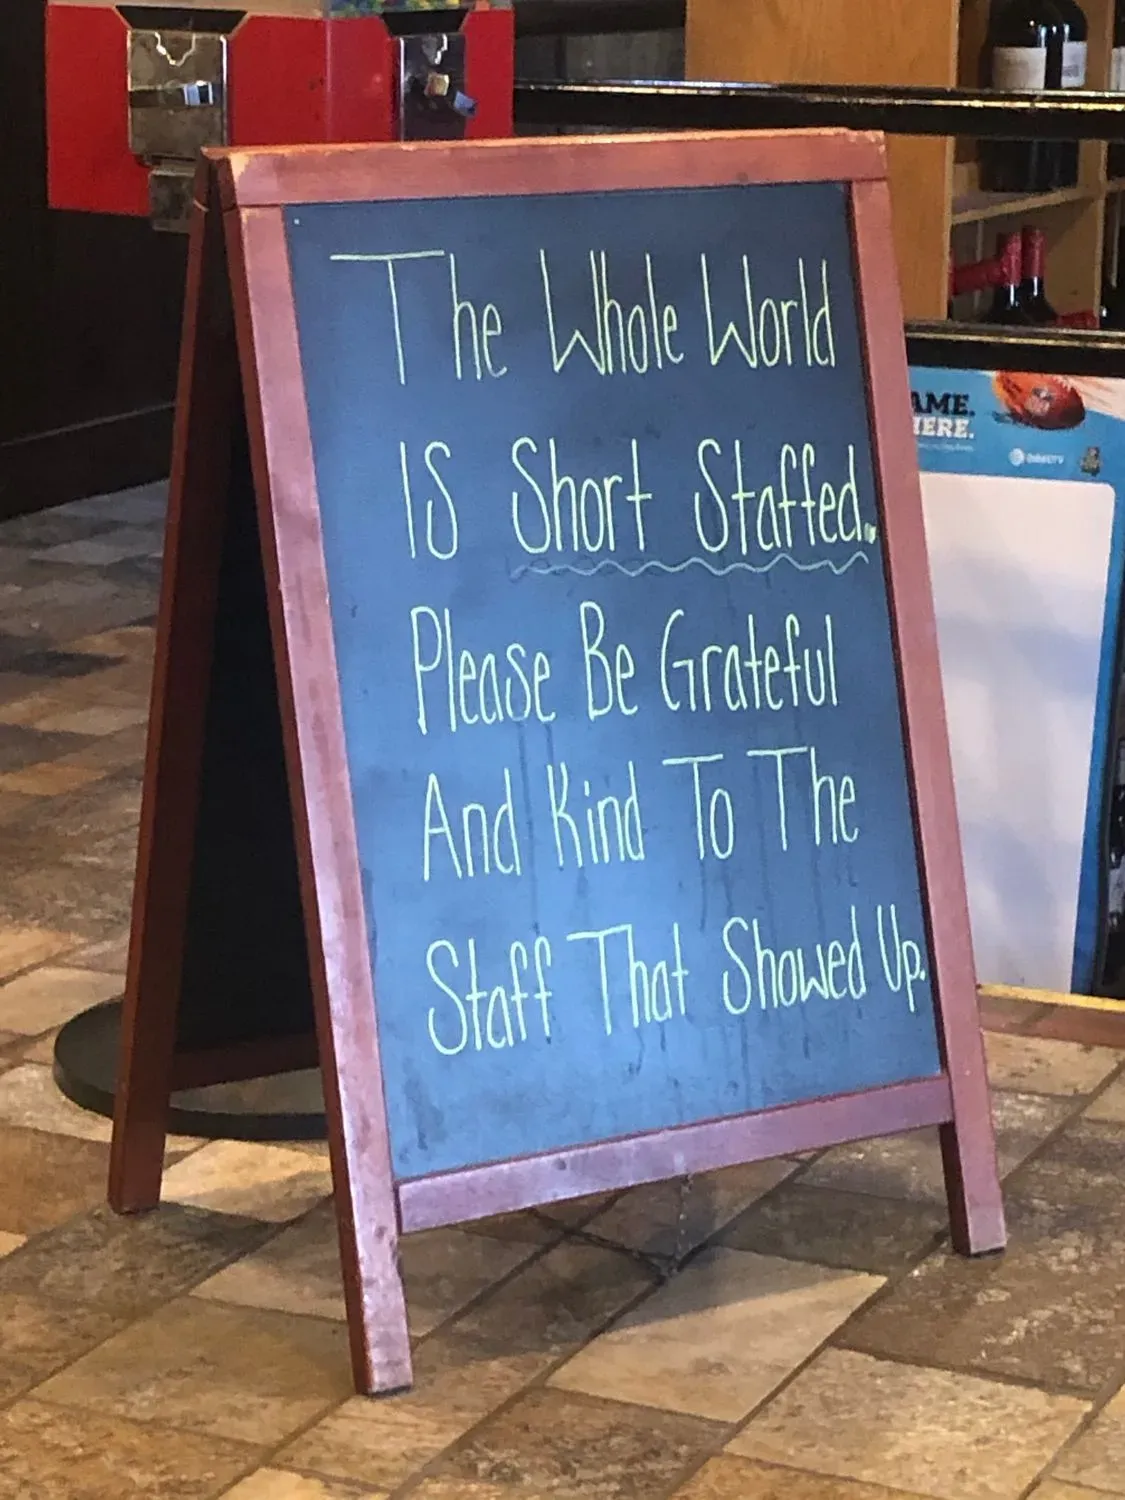 The Whole World
Is Short Staffed.
Please Be Grateful
And Kind To The
Staff That Showed Up.
AME.
HERE.
DIRECTV